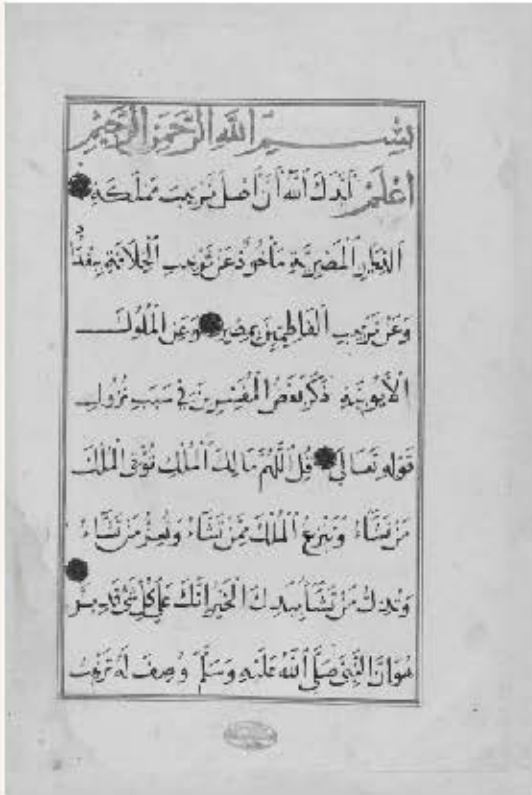 بسم الله الرحمن الرحيم
اعلم ايدك الله ان اصل ترتيب مملكة
الديار المصرية ماخوذ عن ترتيب الخلافة ببغداد
وعن ترتيب الفاطميين بمصر وعن الملوك
الايوبية ذكر بعض المفسرين في سبب نزول
قوله تعالى قل اللهم مالك الملك تؤتي الملك
من تشاء وتنزع الملك ممن تشاء وتعز من تشاء
وتذل من تشا بيدك الخير انك على كل شئ قدير
هو ان النبي صلى الله عليه وسلم وصف له ترتيب